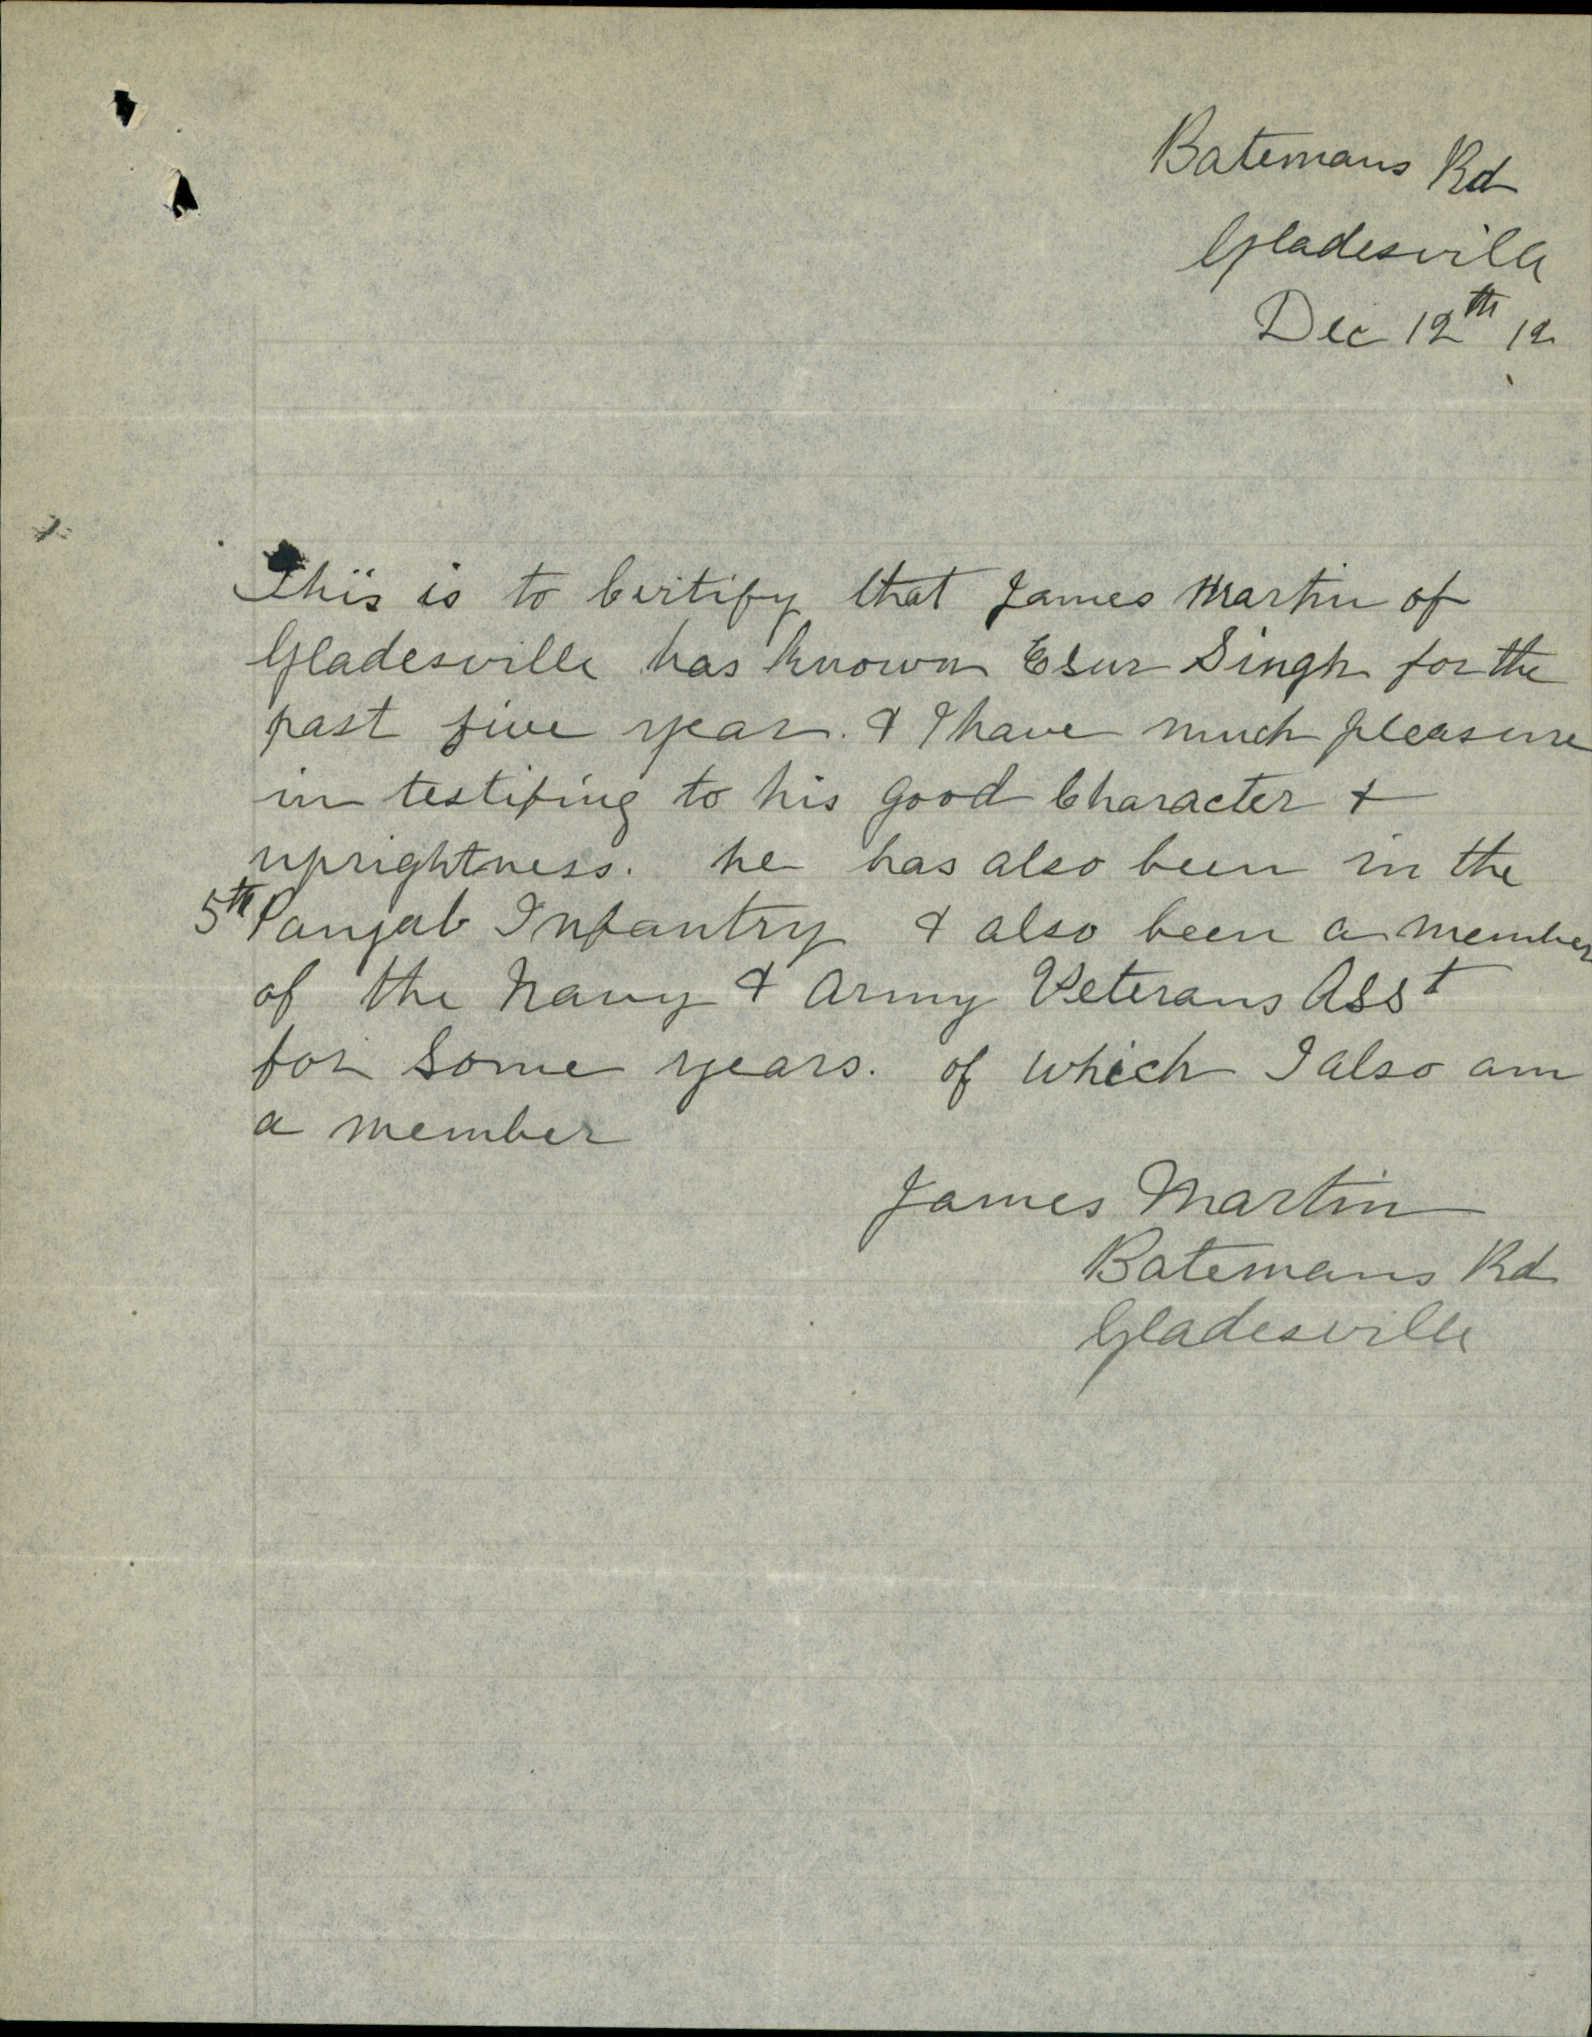 Batemans Rd
Gladesville
Dec 12th 12
This is to Certify that James Martin of
Gladesville has known Esur Singh for the
past five year. & I have much pleasure
in testifing to his good Character &
uprightness. he has also been in the
5th Panjab Infantry & also been a member
of the Navy & Army Veterans Asst
for some years. of which I also am
a member
James Martin
Batemans Rd
Gladesville